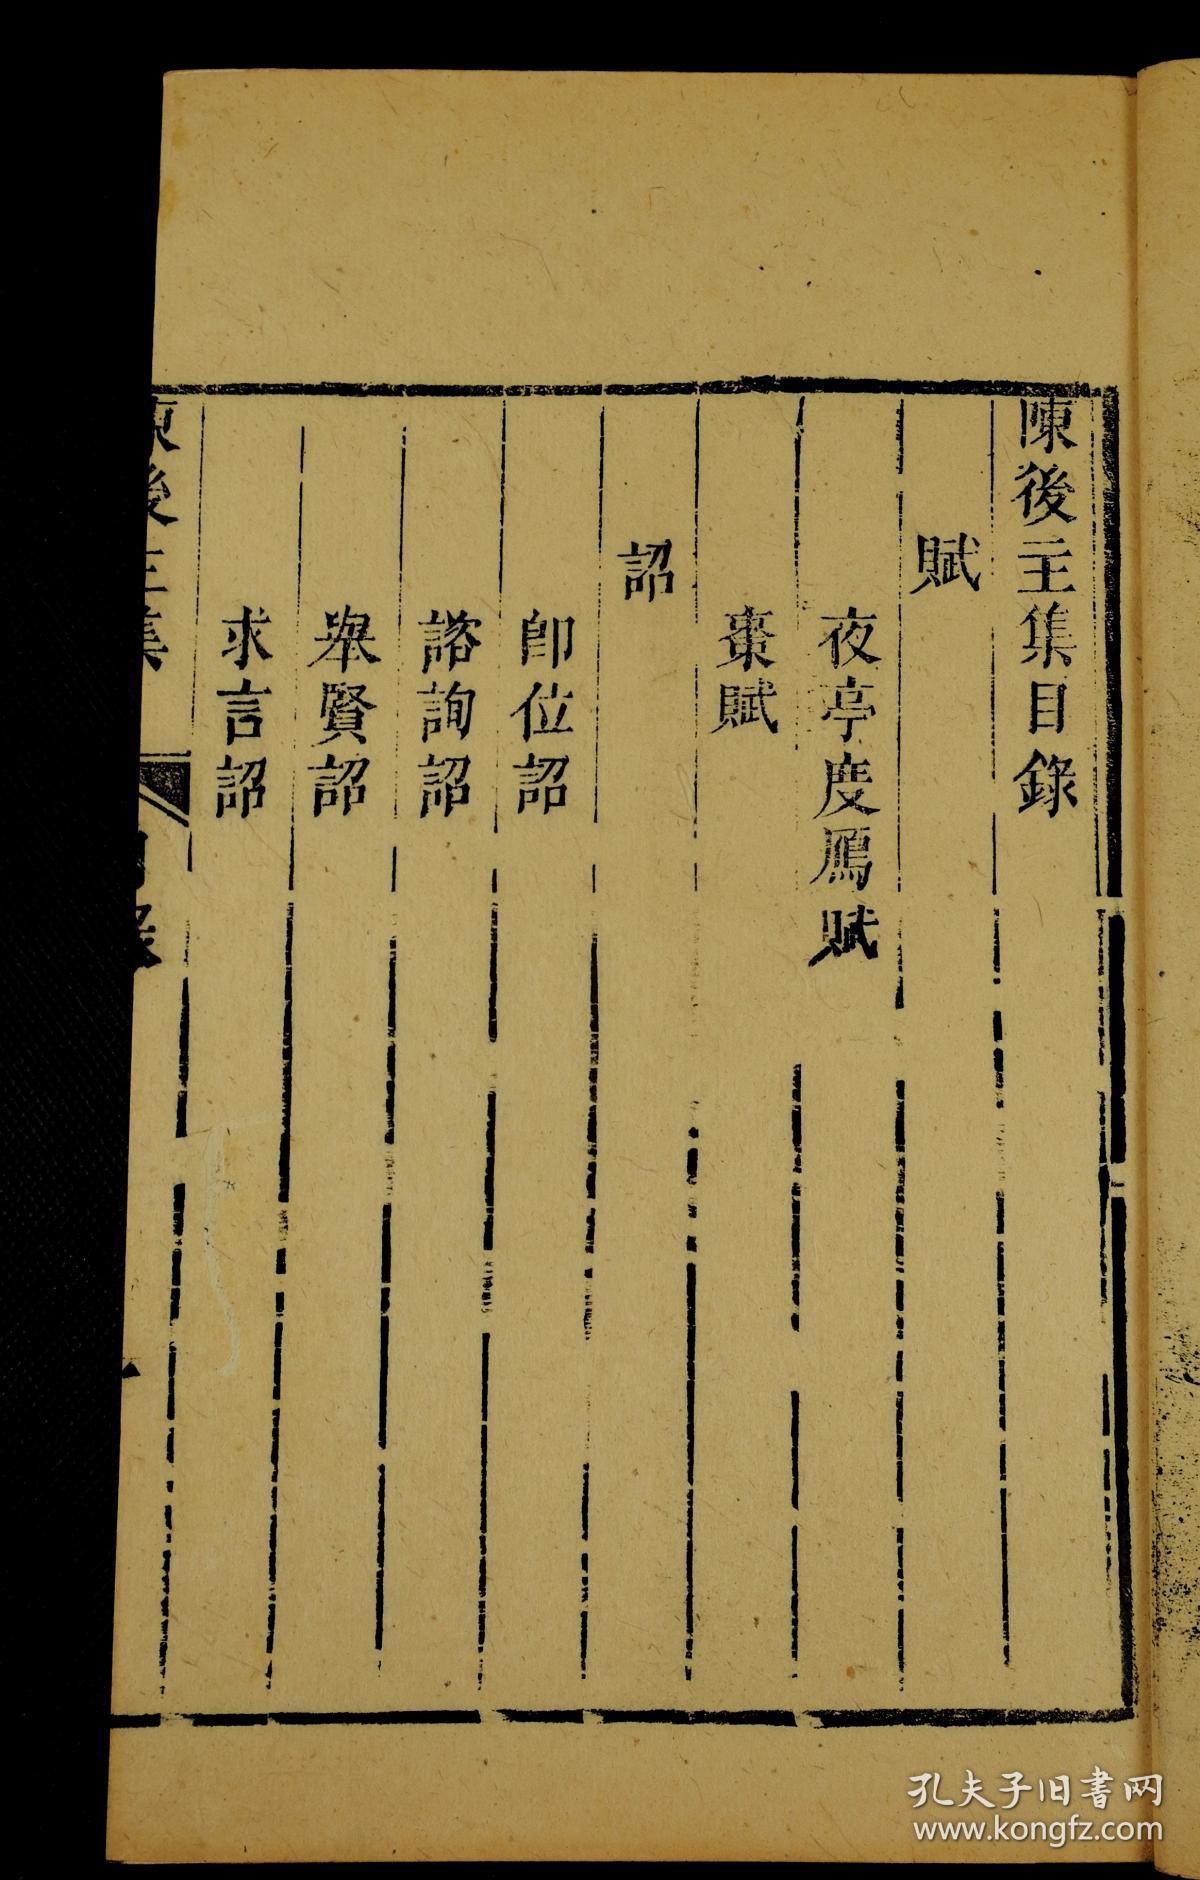 陳後主集目錄
賦
夜亭度鴈賦
棗賦
詔
卽位詔
諮詢詔
舉賢詔
求言詔
陳後主集
目錄
一
孔夫子旧书网
www.kongfz.com